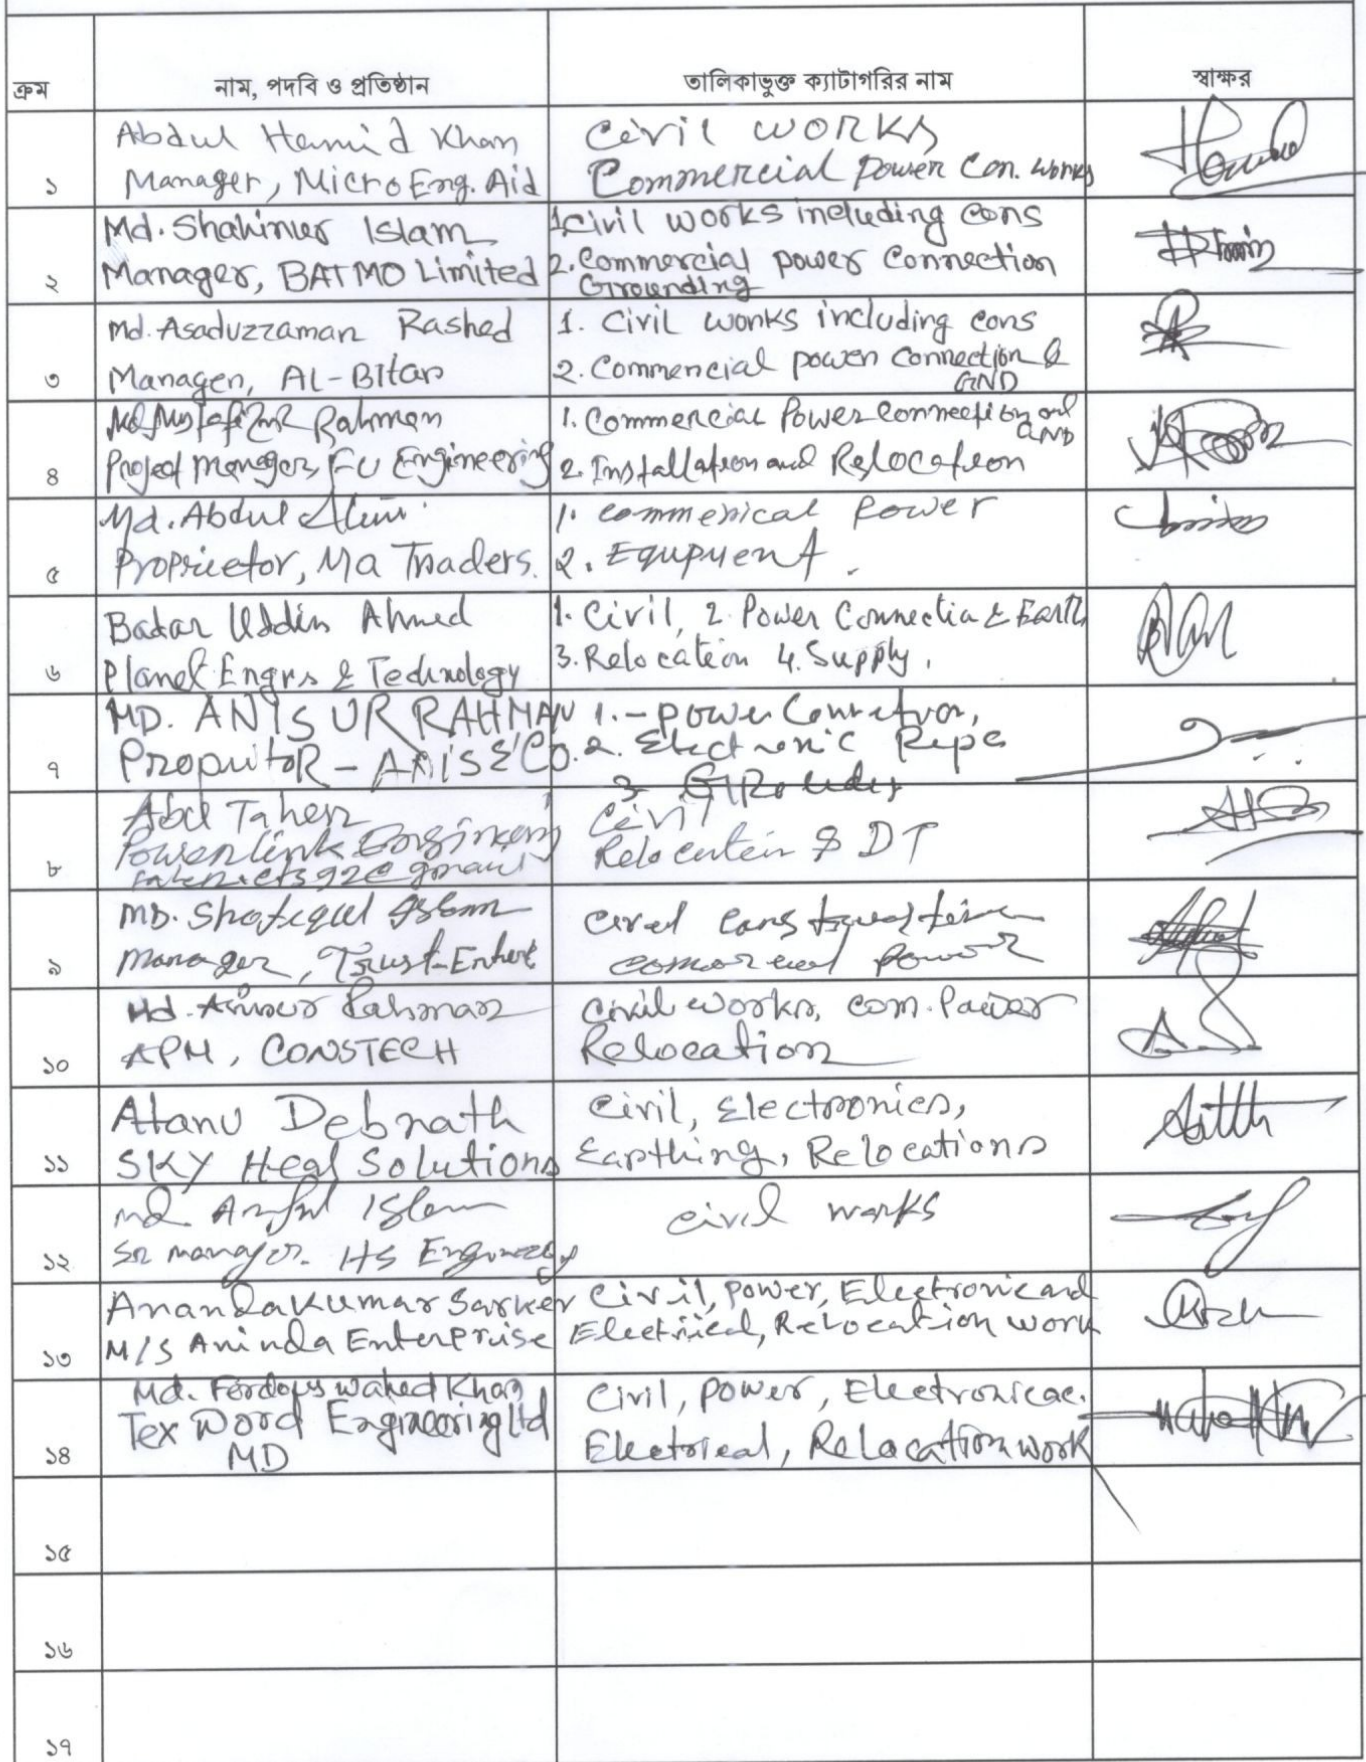 ক্রম নাম, পদবি ও প্রতিষ্ঠান তালিকাভুক্ত ক্যাটাগরির নাম স্বাক্ষর
১ Abdul Hamid Khan
Manager, Micro Eng. Aid
Civil WORKS
Commercial Power Con. works
২ Md. Shahinur Islam
Manager, BATMO Limited
1. Civil works including cons
2. Commercial power Connection
Grounding
৩ Md. Asaduzzaman Rashed
Manager, AL-BItar
1. Civil works including cons
2. Commencial power Connection &
GND
৪ Md Mustafizur Rahman
Project Manager, FU Engineering
1. Commercial Power connection and
GND
2. Installation and Relocation
৫ Md. Abdul Alim
Proprietor, Ma Traders.
1. commenical Power
2. Equpment.
৬ Badar Uddin Ahmed
Planet Engrs & Technology
1. Civil, 2. Power Connectia & Earth
3. Relocation 4. Supply.
৭ MD. ANISUR RAHMAN
PropuitoR - ANIS & CO.
1. - power
2. Electronic
3.
৮ Abu Taher
Powerlink Engineering
Civil
Relocation & DT
৯ MD. Shafiqul Islam
Manager, Trust
civil construction
power
১০ Md. Rahman
APM, CONSTECH
Civil works, com. Power
Relocation
১১ Atanu Debnath
SKY Heal Solutions
Civil, Electronics,
Earthing, Relocations
১২ Md Islam
Sr manager. HS
civil works
১৩ Ananda Kumar Sarker
M/S Aninda Enterprise
Civil, power, Electronic and
Electrical, Relocation work
১৪ Md. Ferdous Wahed Khan
Tex Word Engineering Ltd
MD
Civil, power, Electronicac.
Electrical, Relocation work
১৫
১৬
১৭